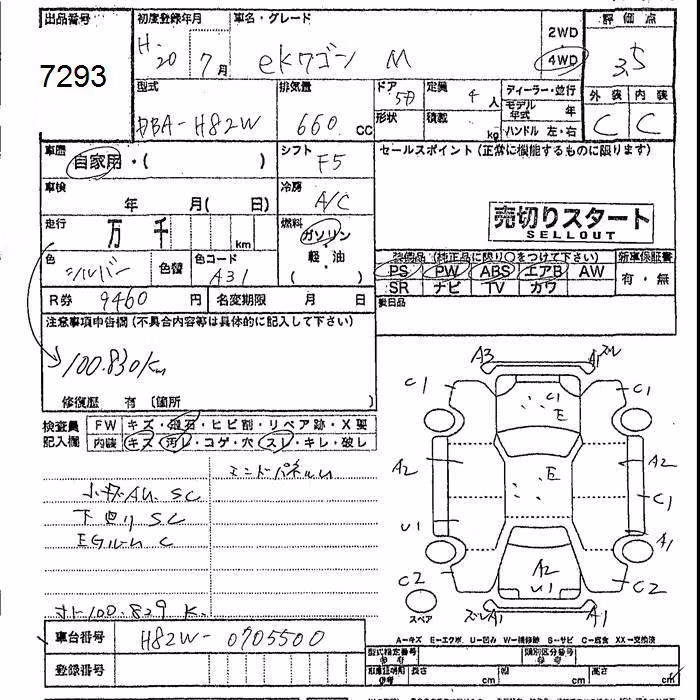 出品番号 初度登録年月 車名・グレード 評価点
7293 H.20 7月 eKワゴン M 2WD 4WD 3.5
型式 排気量 ドア 5D 定員 4人 ディーラー・並行 外装 内装
形状 積載 kg モデル年式 年
DBA-H82W 660 cc ハンドル 左・右 C C
車歴 自家用・( ) シフト F5 セールスポイント(正常に機能するものに限ります)
車検 年 月( 日) 冷房 A/C
売切りスタート
SELLOUT
走行 万 千 km 燃料 ガソリン 軽油 ( )
装備品(純正品に限り○をつけて下さい) 新車保証書
色 シルバー 色替 色コード A31
PS PW ABS エアB AW 有・無
SR ナビ TV カワ
R券 9460 円 名変期限 月 日
注意事項申告欄(不具合内容等は具体的に記入して下さい)
100.830km
修復歴 有 〔箇所 〕
検査員 FW キズ・飛石・ヒビ割・リペア跡・X要
記入欄 内装 キズ・汚レ・コゲ・穴・スレ・キレ・破レ
エンドパネルU
小キズAU SC
下回り SC
EGルーム C
オト100.829 K
A3 A1 ズレ
C1 C1 C1
E
A2 E A2
C1
U1 A1
C2 A2 U1 C2
スペア ズレA1 A1
A—キズ E—エクボ U—凹み W—補修跡 S—サビ C—腐食 XX—交換済
車台番号 H82W-0705500
型式指定番号 類別区分番号
登録番号
長さ cm 幅 cm 高さ cm